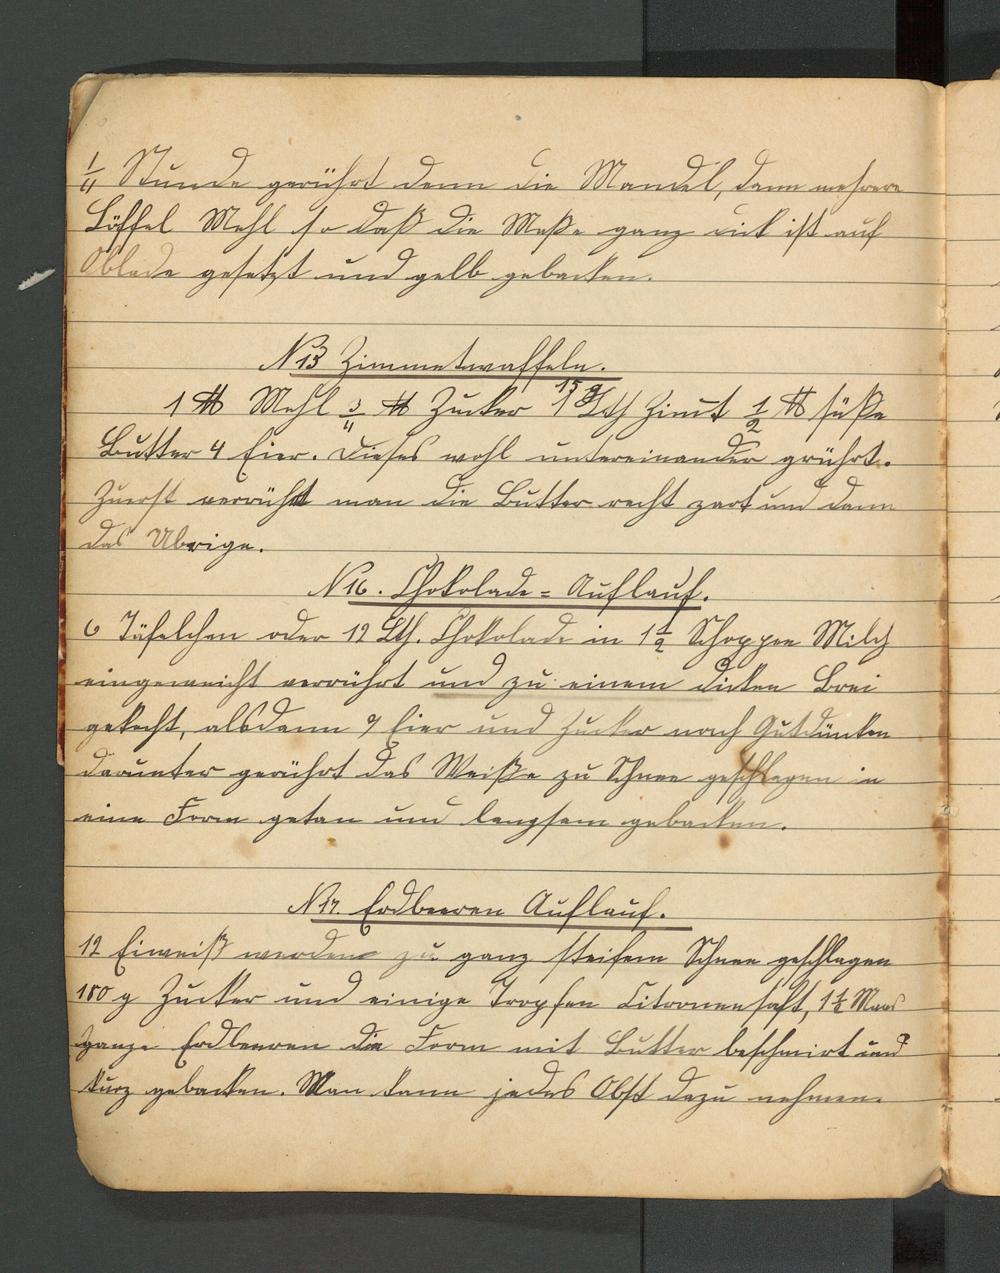 1/4 Stunde gerührt denn die Mandel, dann mehrere
Löffel Mehl so daß die Maße ganz dick ist auf
Oblade gesetzt und gelb gebacken.
N 15 Zimmetwaffeln.
1 ℔ Mehl 3/4 ℔ Zucker Lth Zimt 1/2 ℔ süße
Butter 4 Eier. Dieses wohl untereinander grührt.
Zuerst verrührt man die Butter recht zart und dann
das Übrige.
N 16. Chokolade=Auflauf.
6 Täfelchen oder 12 Lth. Chokolade in 1 1/2 Schoppen Milch
eingeweicht verrührt und zu einem dicken Brei
gekocht, alsdann 9 Eier und Zucker nach Gutdünken
darunter gerührt das Weiße zu Schnee geschlagen in
eine Form getan und langsam gebacken.
N 17. Erdbeeren Auflauf.
12 Eiweiß werden zu ganz steifem Schnee geschlagen
180 g Zucker und einige Tropfen Citronensaft, 1 1/2 Maas
ganze Erdbeeren die Form mit Butter beschmirt und
kurz gebacken. Man kann jedes Obst dazu nehmen.